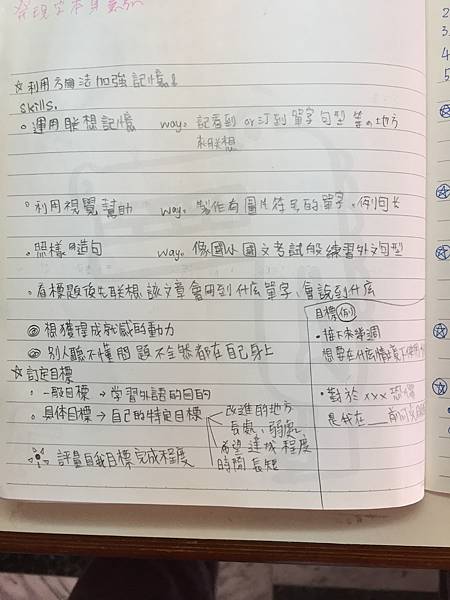 ☆利用方法加強記憶!
skills.
。運用联想記憶 way。記看到 or 訂到單字句型等の地方
來联想
。利用視覺幫助 way。製作有圖片符号的單字。例句卡
。照樣造句 way。像國小國文考試般練習外文句型
。看標題預先联想該文章會用到什麼單字,會說到什麼
◎ 想獲得成就感的動力
◎ 別人聽不懂問題不全然都在自己身上
☆訂定目標
。一般目標 → 學習外語的目的
。具体目標 → 自己的特定目標
改進的地方
長處、弱處
希望達成程度
時間長短
評量自我目標完成程度
目標(例)
・接下來幾週
想要在什麼情境下使用
・對於 xxx 恐懼
是我在___前